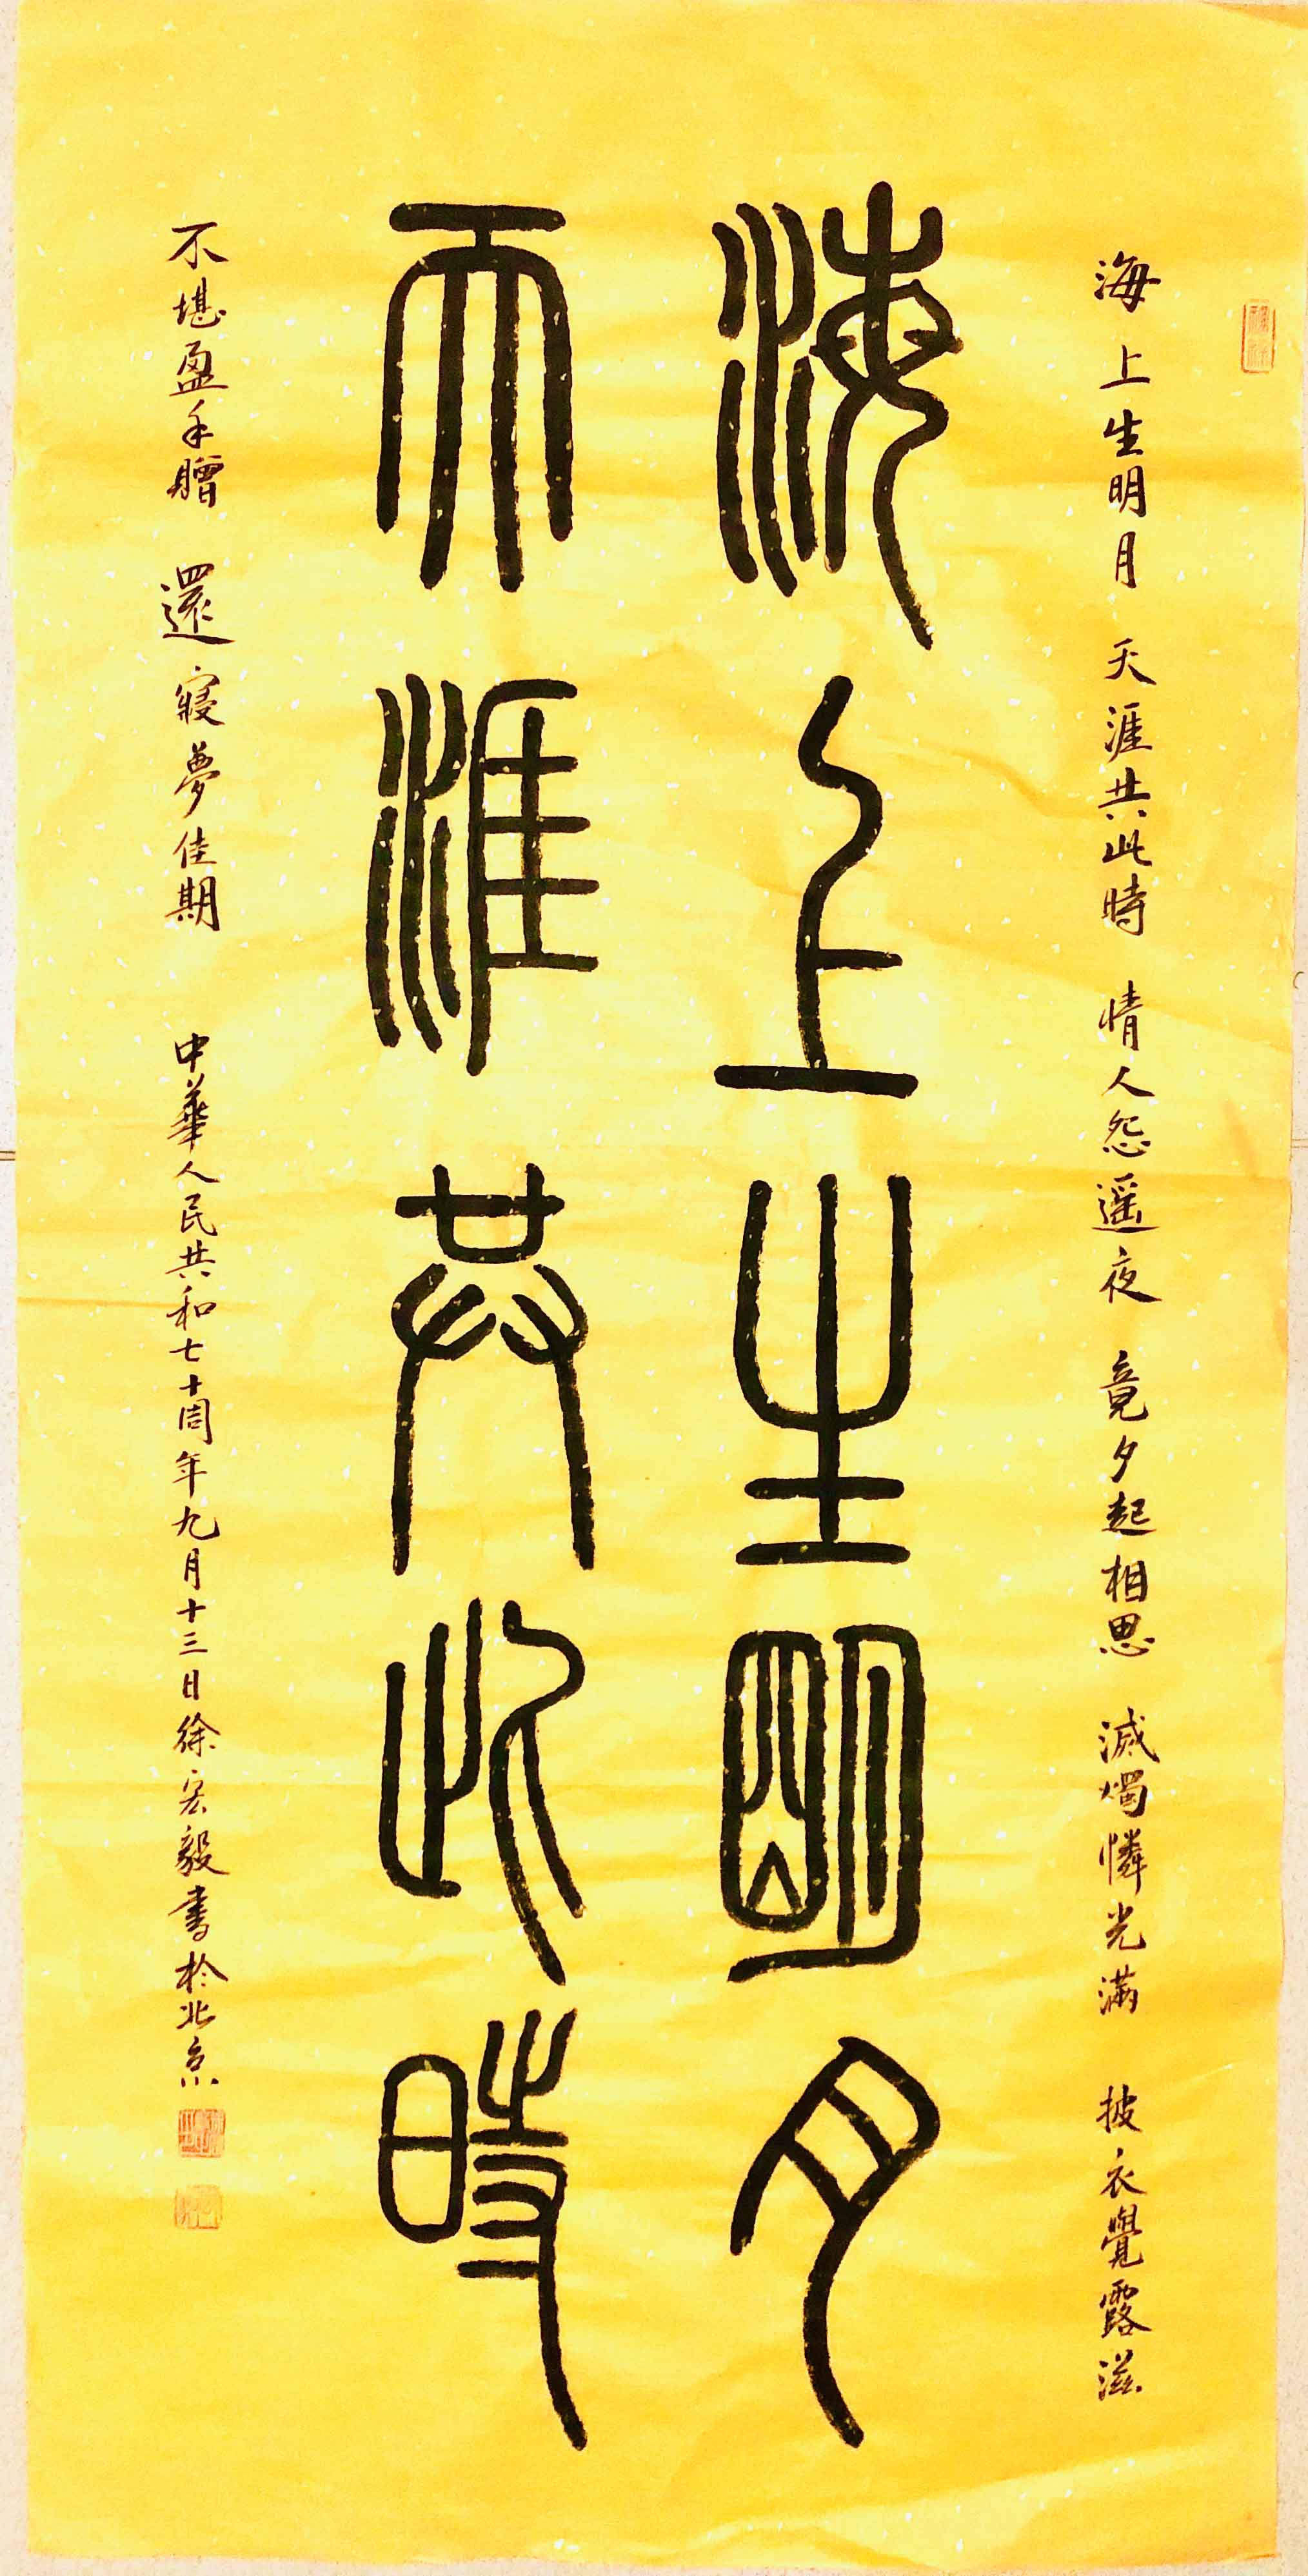 海上生明月 天涯共此時 情人怨遥夜 竟夕起相思 滅燭憐光滿 披衣覺露滋
海上生明月
天涯共此時
不堪盈手贈 還寢夢佳期 中華人民共和七十周年九月十三日徐宏毅書於北京